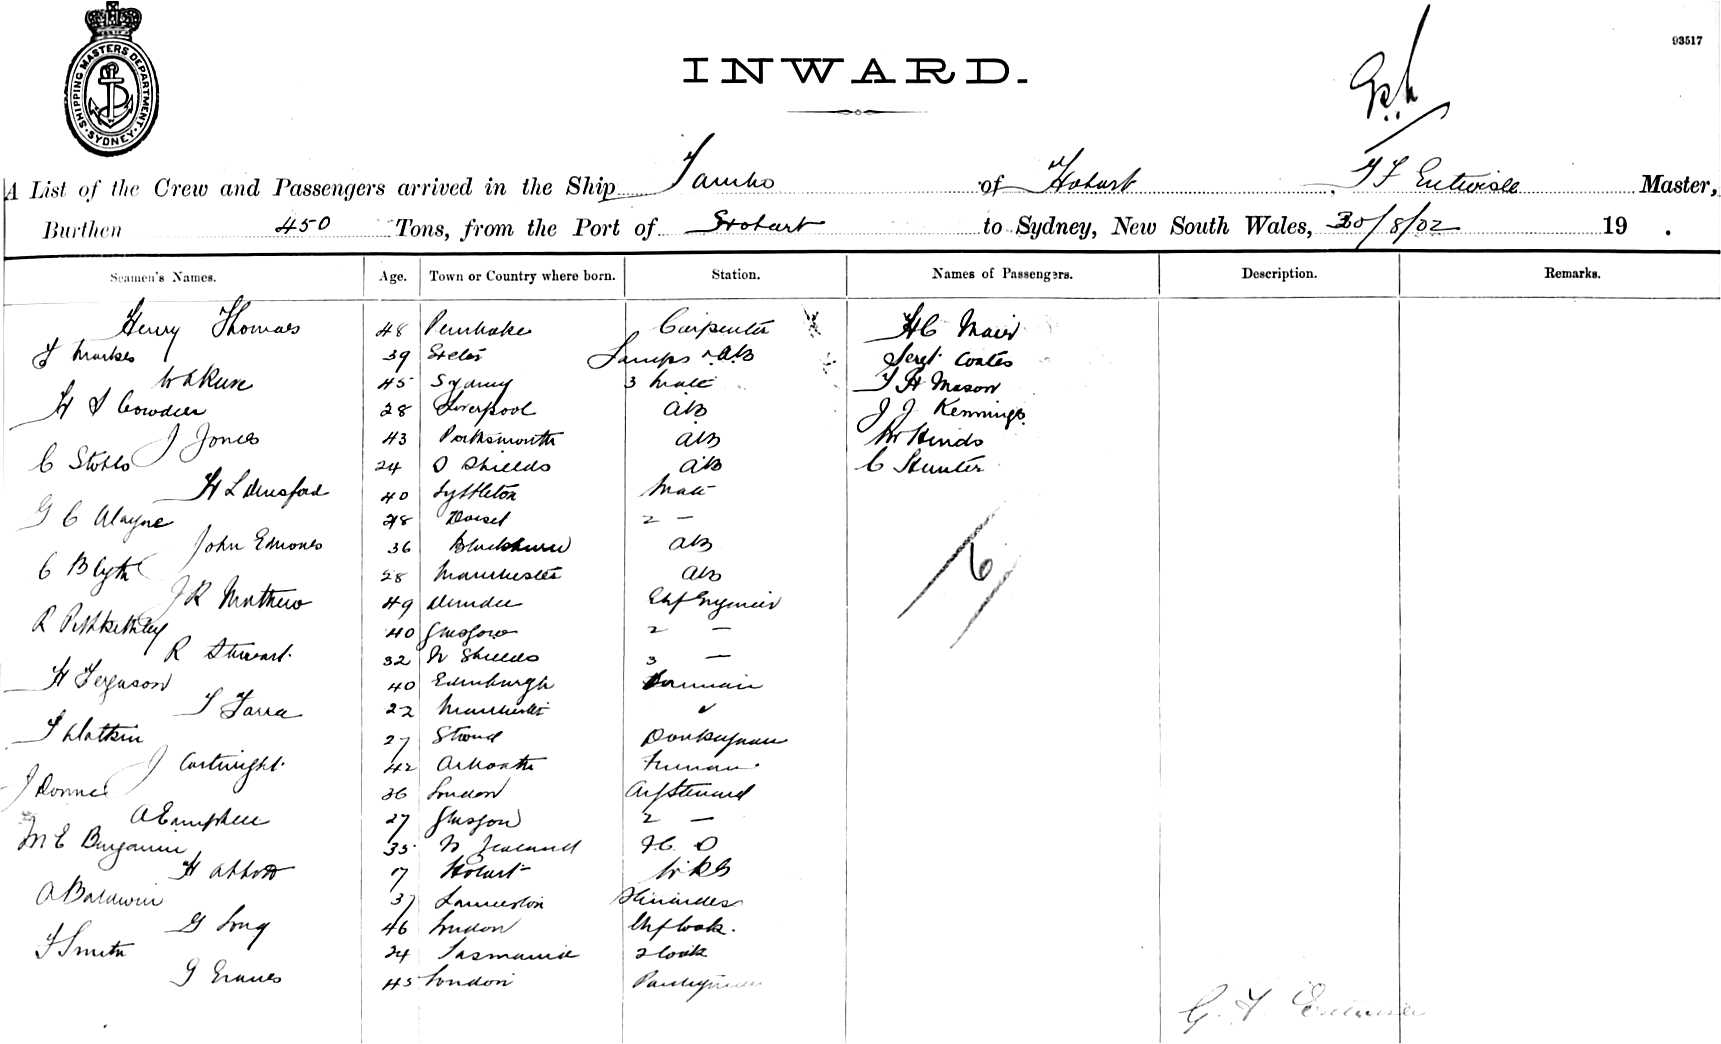 SHIPPING MASTERS DEPARTMENT
SYDNEY
93517
INWARD.
A List of the Crew and Passengers arrived in the Ship Tambo of Hobart Entwisle Master,
Burthen 450 Tons, from the Port of Hobart to Sydney, New South Wales, 30/8/02 19 .
Seamen's Names. Age. Town or Country where born. Station. Names of Passengers. Description. Remarks.
Henry Thomas 48 Pembroke Carpenter H C Mair
Markes 39 Lamps & AB Sergt Coates
45 Sydney 3 Mate Mason
H S Cowdier 28 Liverpool AB J J Kennings
J Jones 43 Portsmouth AB Hinds
C Stobbs 24 S Shields AB C Hunter
H 40 Lyttleton Mate
G C Alayne 28 Dorset 2 —
John Edmones 36 AB
C Blyth 28 Manchester AB
J R Mathew 49 Dundee Chf Engineer
R 40 Glasgow 2 —
R Stewart 32 N Shields 3 —
H Ferguson 40 Edinburgh
T Tarra 22 Manchester
Watkin 27 Stroud Donkeyman
J Cartwright 42 Arbroath Fireman
J Donne 36 London Chf Steward
A Campbell 27 Glasgow 2 —
M E Benjamin 35 N Zealand
H Abbott 17 Hobart
A Baldwin 37 Launceston Stewardess
G Long 46 London Chf Cook.
F Smith 24 Tasmania 2 Cook
G Eraves 45 London Pantryman
6
G. F. Entwisle